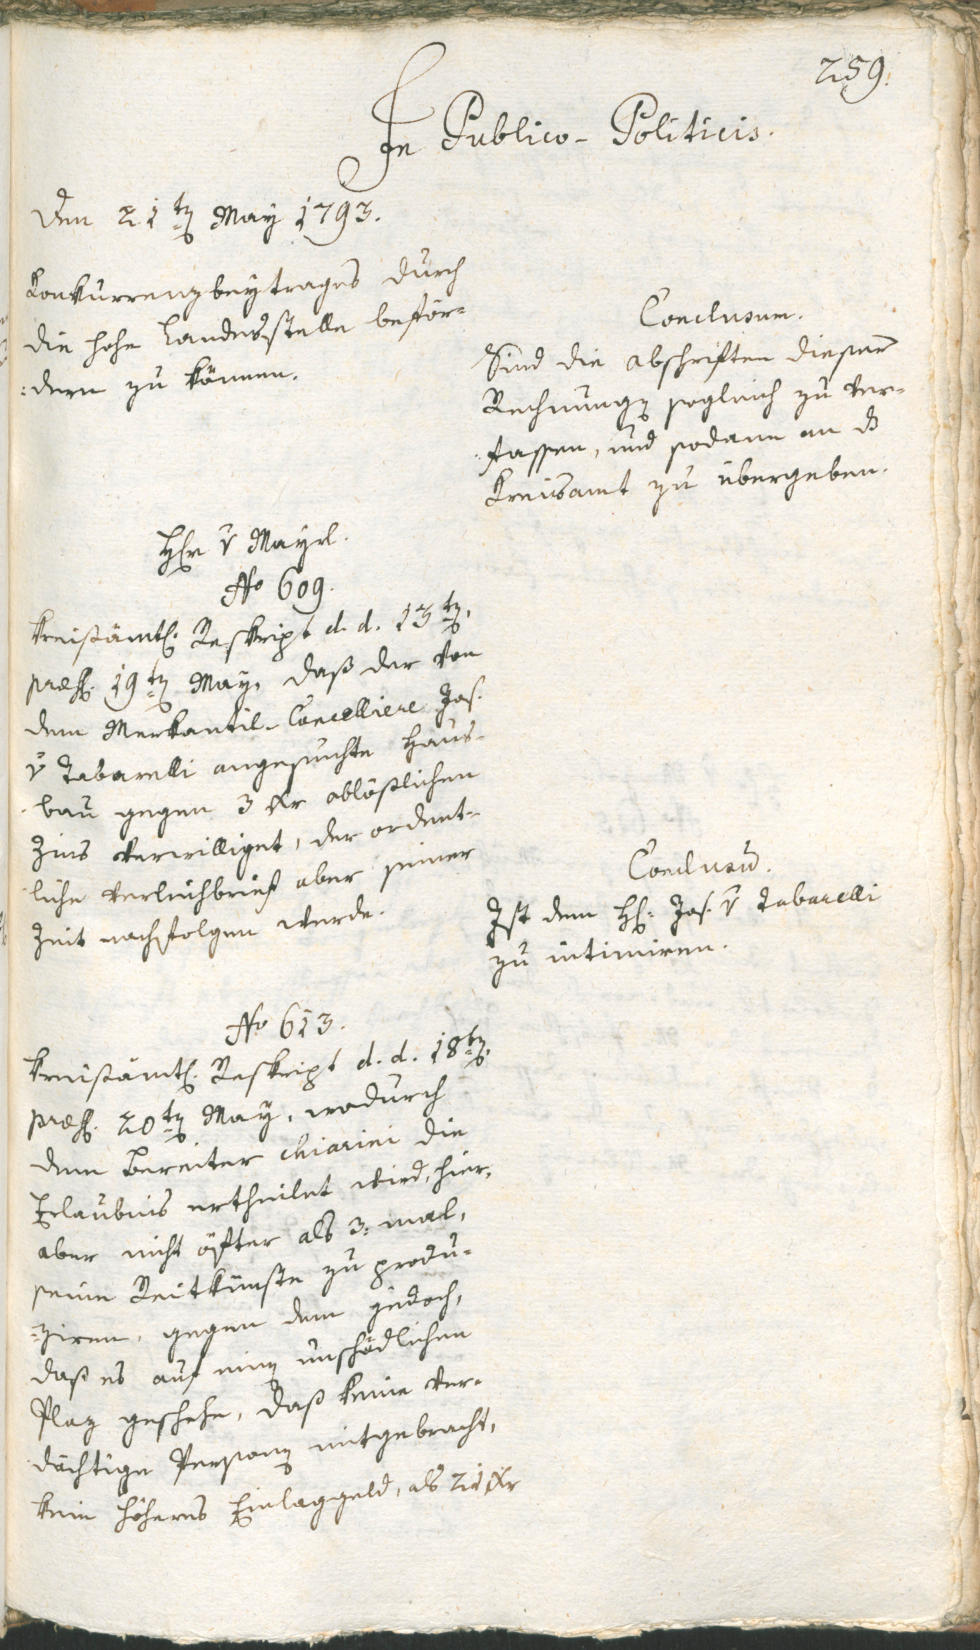 259.
In Publico-Politicis.
Den 21ten May 1793.
Konkurrenzbeytrages durch
die hohe Landesstelle beför-
dern zu können.
Conclusum.
Sind die abschriften dieser
Rechnungen sogleich zu ver-
fassen, und sodann an das
Kreisamt zu übergeben.
Hr. v Mayrl.
No 609.
kreißämtl. Reskript d. d. 13ten,
præs. 19ten May, daß der von
dem Merkantil-Cancelliere Jos.
v Tabarelli angesuchte Haus-
bau gegen 3 xr ablößlichen
Zins verwilliget, der ordent-
liche Verleihbrief aber seiner
Zeit nachfolgen werde.
Conclusum.
Ist dem H: Jos. v Tabarelli
zu intimiren.
No 613.
kreißämtl. Reskript d. d. 18ten,
præs. 20ten May, wodurch
dem Bereiter Chiarini die
Erlaubnis ertheilet wird, hier,
aber nicht öfter als 3: mal,
seine Reitkünste zu produ-
ziren, gegen dem jedoch,
daß es auf einen unschädlichen
Plaz geschehe, daß keine ver-
dächtige Personen mitgebracht,
kein höheres Einlaggeld, als 24 xr